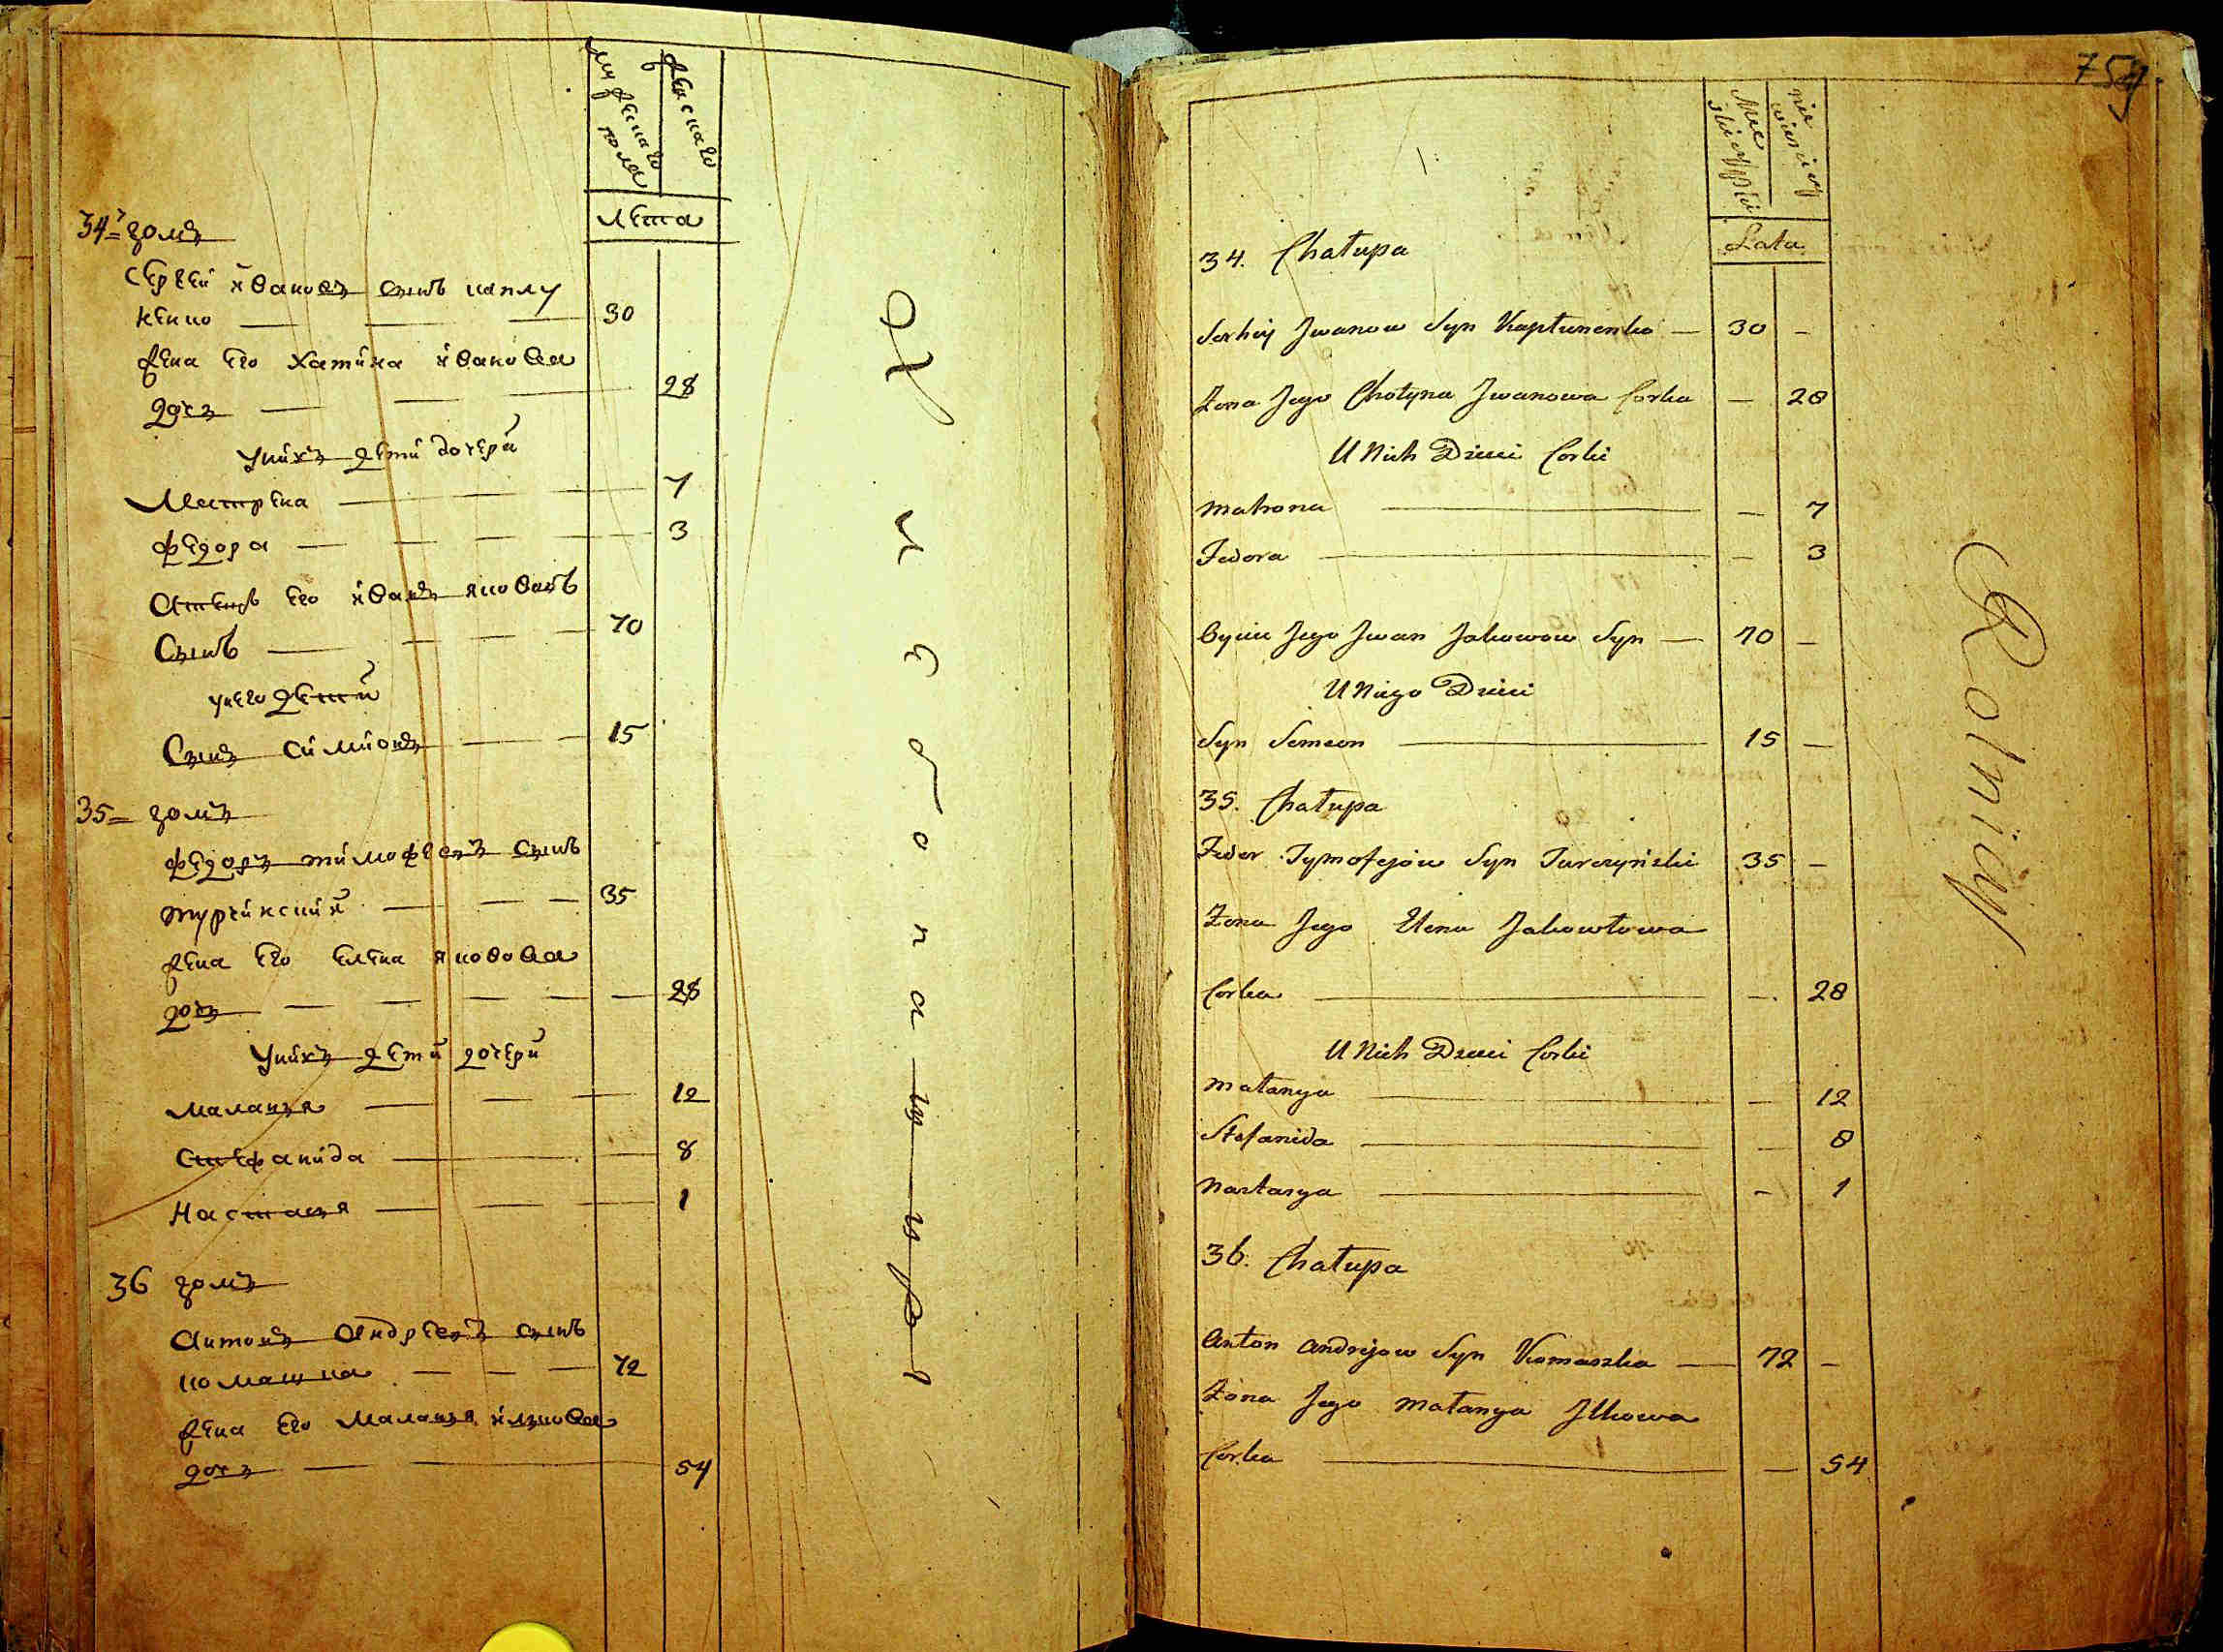 мужескаго
пола
женскаго
лета
34й домъ
Сергей ивановъ сынъ каплу
ненко — 30
жена его хатина иванова
дочъ — 28
у нихъ дети дочери
Мастрена — 7
федора — 3
Отецъ его иванъ якововъ
Сынъ — 70
у него дети
Сынъ Симионъ — 15
35 = домъ
федоръ тимофеевъ сынъ
турчинский — 35
жена его елена яковова
дочъ — 28
у нихъ дети дочери
маланъя — 12
Стефанида — 8
Настасъя — 1
36 домъ
антонъ андреевъ сынъ
комашка — 72
жена его маланъя илъкова
дочъ — 54
Хлебопашцы
759
Męzkiey płci
niewieściey
Lata
34. Chałupa
Serhiy Jwanow Syn Kapłunenko — 30 –
Żona Jego Chotyna Jwanowa Corka – 28
U Nich Dzieci Corki
Matrona — – 7
Fedora — – 3
Oyciec Jego Jwan Jakowow Syn — 70 –
U Niego Dzieci
Syn Semeon — 15 –
35. Chałupa
Fedor Tymofejow Syn Turczyński 35 –
Żona Jego Elena Jakowłowa
Corka — – 28
U Nich Dzieci Corki
Małanya — – 12
Stefanida — – 8
Nastasya — – 1
36. Chałupa
Anton Andrejow Syn Komaszka — 72 –
Żona Jego Małanya Jlkowa
Corka — – 54
Rolnicy